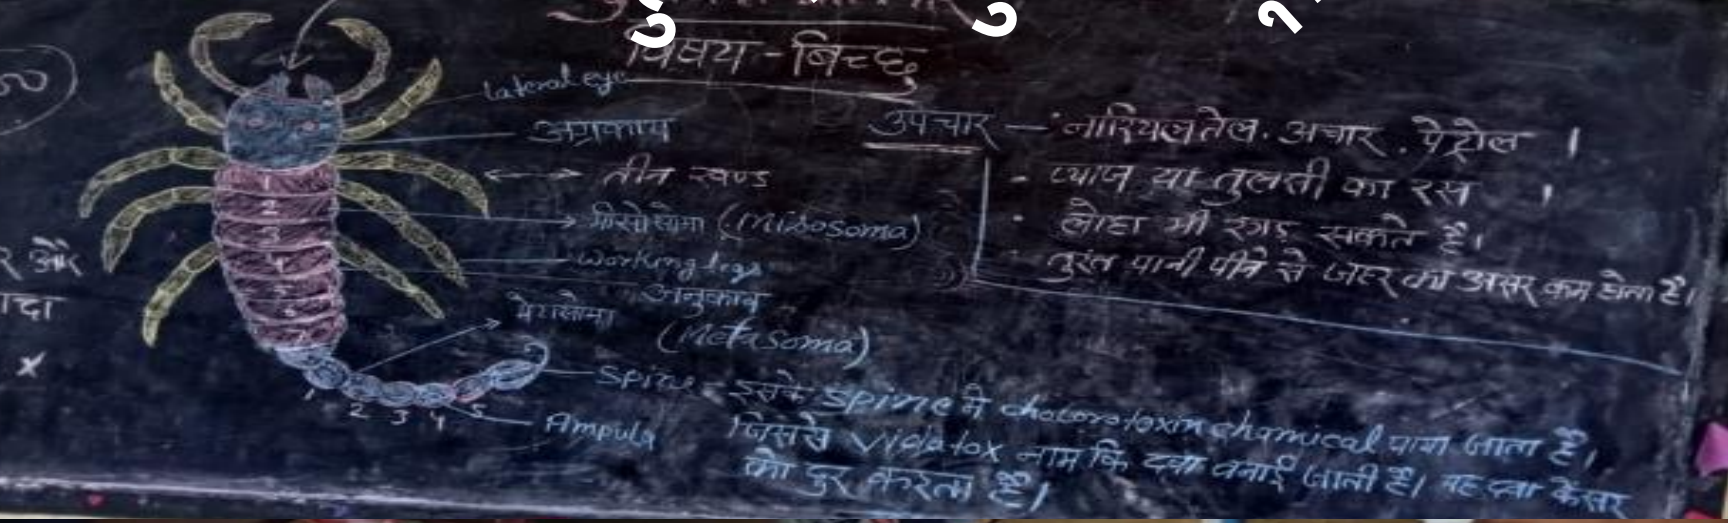 विषय - बिच्छु
Lateral eye
अग्रकाय
तीन खण्ड
मीसोसोमा (Midosoma)
Working legs
अनुकाय
मेटासोमा
(Metasoma)
1 2 3 4 5 6 7
1 2 3 4 5
उपचार - नारियल तेल. अचार. पेट्रोल ।
- प्याज या तुलसी का रस ।
· लोहा भी रगड़ सकते है।
तुरंत पानी पीने से जहर का असर कम होता है।
Spine - इसके spine में choloro toxin chamical पाया जाता है।
Ampula
जिससे Vidatox नाम कि दवा बनाई जाती है। यह दवा कैंसर
को दुर करता है।